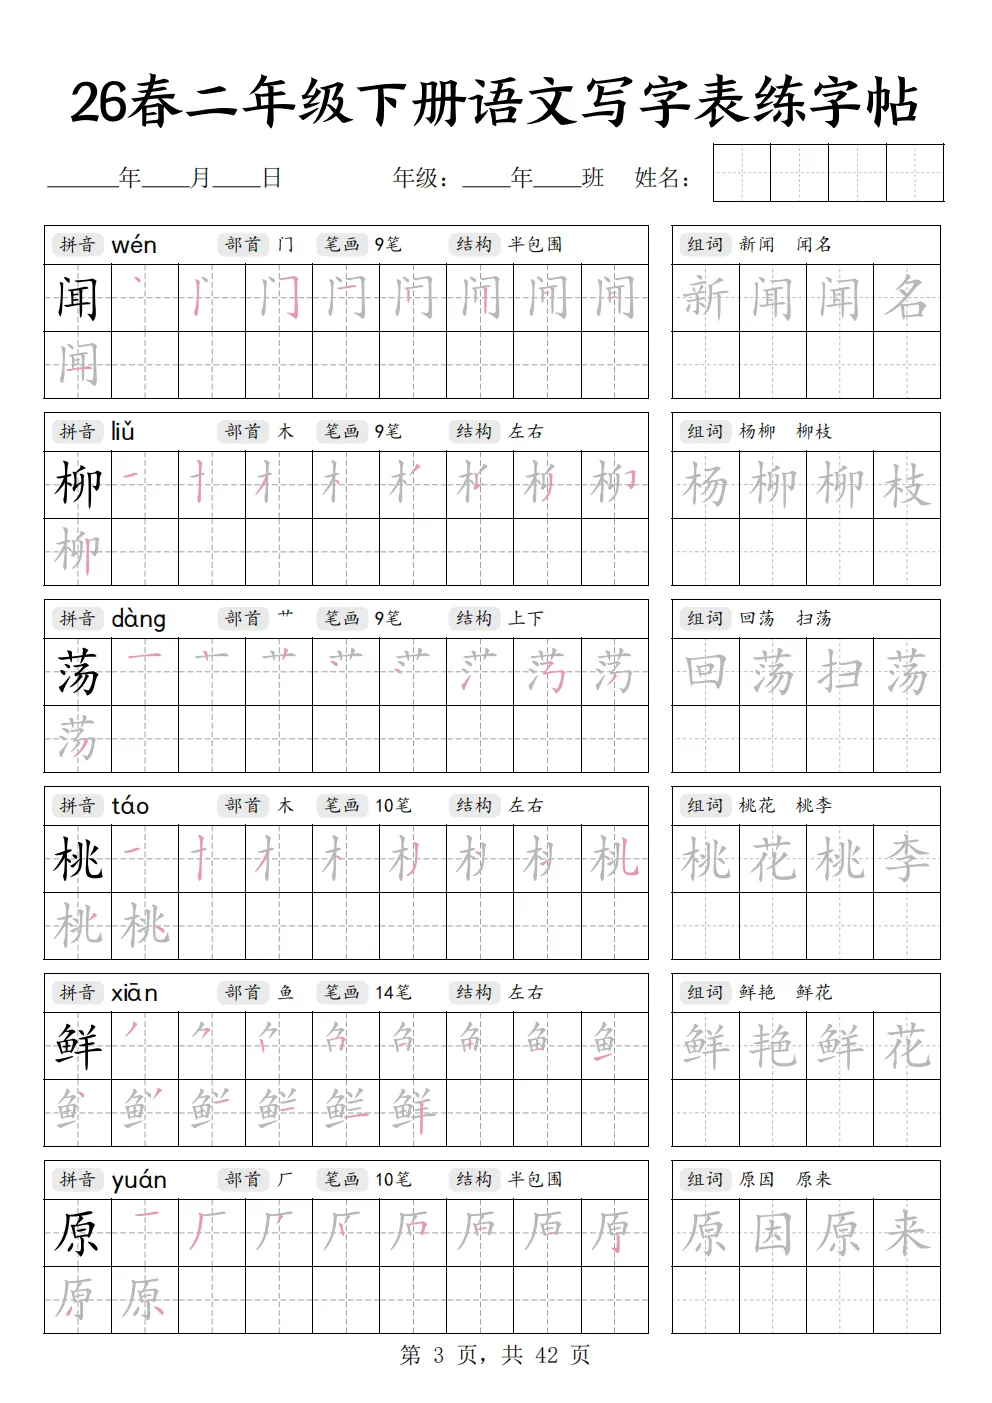 26春二年级下册语文写字表练字帖
______年____月____日 年级：____年____班 姓名：
拼音 wén 部首 门 笔画 9笔 结构 半包围 组词 新闻 闻名
闻 新闻闻名
闻
拼音 liǔ 部首 木 笔画 9笔 结构 左右 组词 杨柳 柳枝
柳 杨柳柳枝
柳
拼音 dàng 部首 艹 笔画 9笔 结构 上下 组词 回荡 扫荡
荡 回荡扫荡
荡
拼音 táo 部首 木 笔画 10笔 结构 左右 组词 桃花 桃李
桃 桃花桃李
桃 桃
拼音 xiān 部首 鱼 笔画 14笔 结构 左右 组词 鲜艳 鲜花
鲜 鲜艳鲜花
鲜
拼音 yuán 部首 厂 笔画 10笔 结构 半包围 组词 原因 原来
原 原因原来
原 原
第 3 页，共 42 页